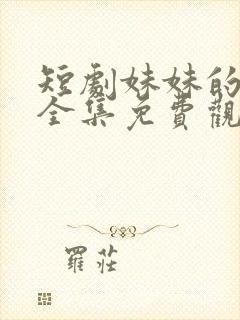 短劇妹妹的
全集免費觀
羅莊